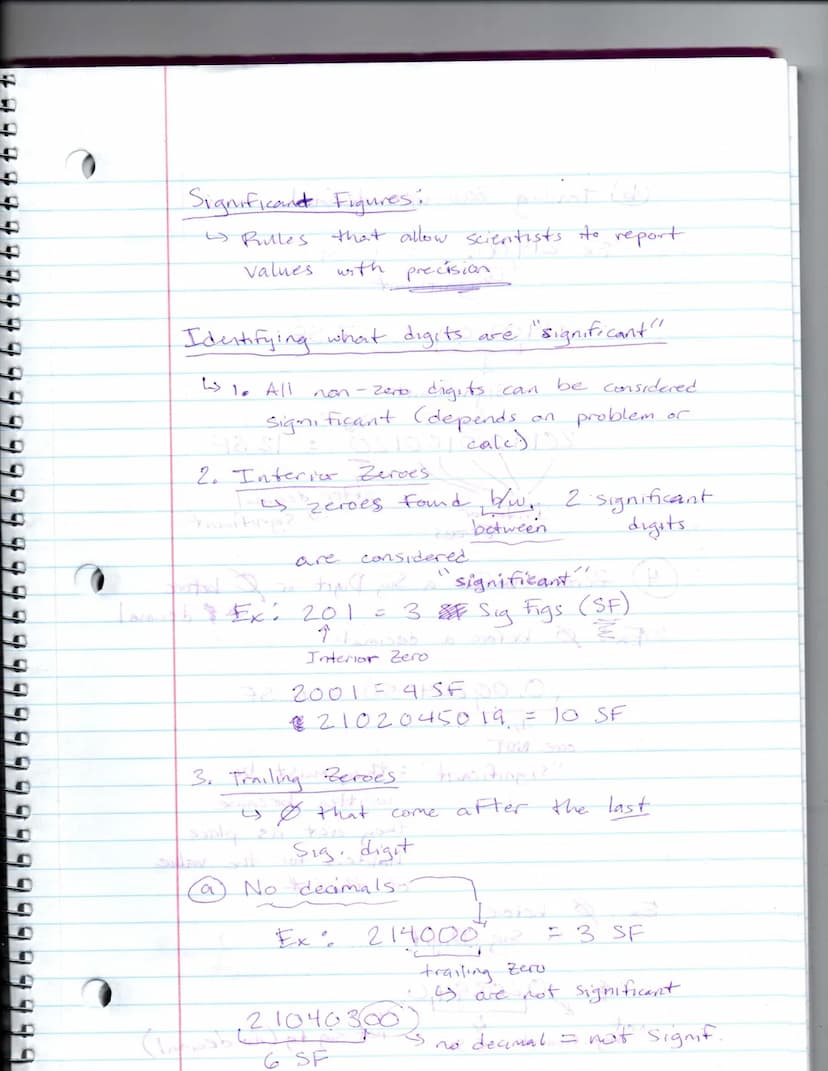 Significant Figures:
↳ Rules that allow scientists to report
values with precision
Identifying what digits are "significant"
↳ 1. All non-zero digits can be considered
significant (depends on problem or
calc.)
2. Interior Zeroes
↳ zeroes found b/w. 2 significant
between digits
are considered
"significant"
Ex: 201 = 3 Sig Figs (SF)
↑
Interior Zero
2001 = 4 SF
2102045019. = 10 SF
3. Trailing Zeroes
↳ Ø that come after the last
Sig. digit
(a) No decimals
Ex: 214000 = 3 SF
trailing zero
↳ are not significant
21040300
↳ no decimal = not signif.
6 SF